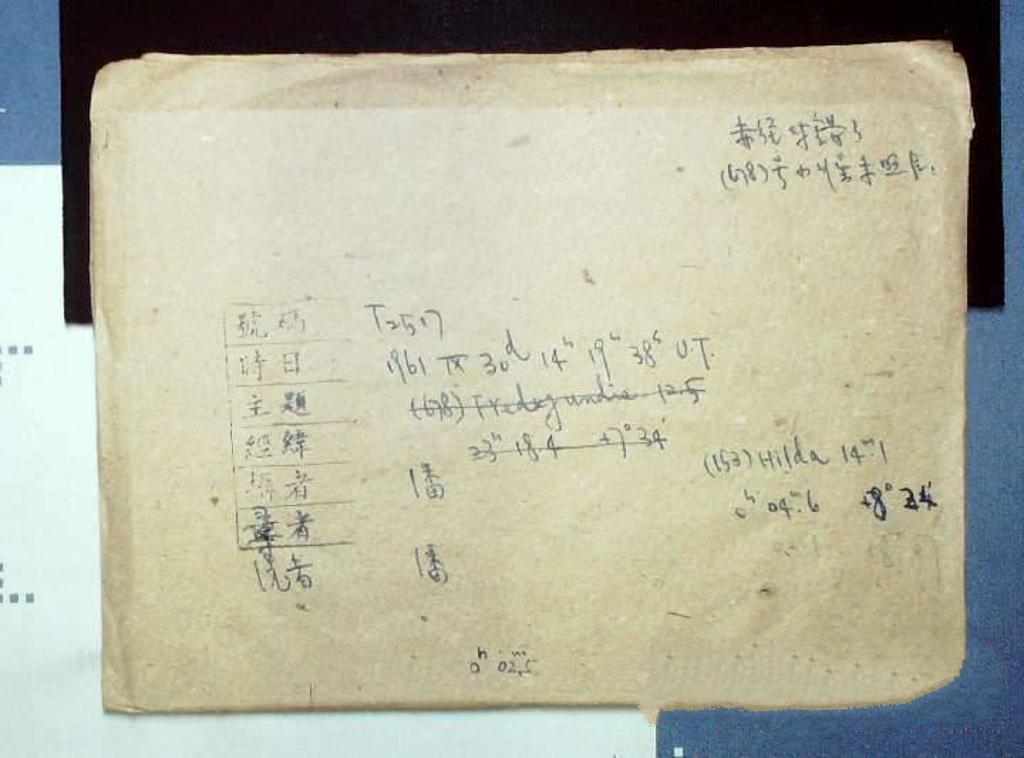 赤经 错了
(678)号 未照
號碼 T2517
時日 1961 IX 30d 14h 19m 38s U.T.
主題 (678) Fredegundis 12.5
經緯 23h 18.4 +7° 34'
(153) Hilda 14m.1
攝者 潘
0h 04m.6 +8°
尋者
洗者 潘
0h 02m.5